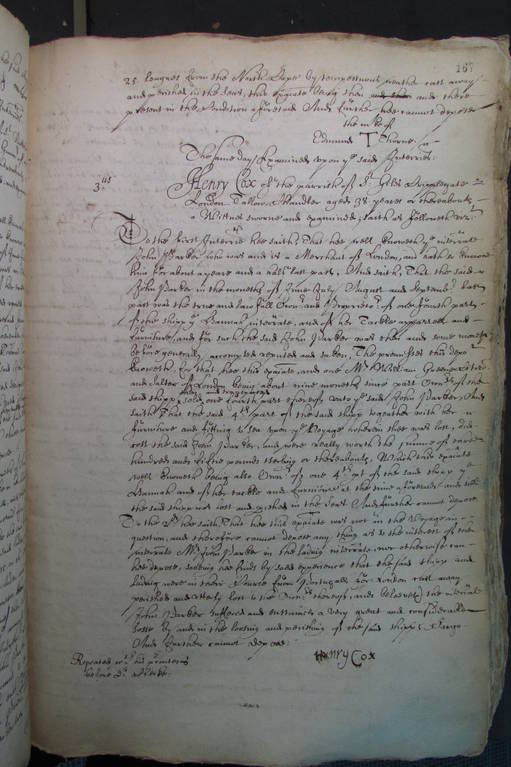 167
25 leagues from the North Cape by tempestuous weather cast away
and perished in the seas, this deponent being then and there
present in the
the marke of
Edmund T Thorne
The same day Examined upon ye said Interries.
3us
Henry Cox of the parrish of St Giles Cripplegate
London Tallow Chandler aged 38 yeares or thereabouts
a Wittnes sworne and examined saith as followeth vizt.
To the first Interrie hee saith That hee well knoweth ye interrate
John Barker who was and is a Merchant of London, and hath so knowne
him for about a yeare and a halfe last past. And saith, That the said
John Barker in the moneths of June July August and September last
past was the true and lawfull Owner and Proprietor of one fourth parte
of the shipp ye Hannah interrate, and of her Tackle apparrell and
furniture, and for such the said John Barker was then and some moneths
before generally accompted reputed and taken. The premisses this depot
knoweth for that hee this deponte, and one Mr William
and Salter of London being about nine moneths since part Owners of the
said shipp, sold one fourth part thereof unto ye said John Barker, And
saith That the said 4th part of the said shipp togeather with her
furniture and fitting to sea upon ye Voyage wherein shee was lost, did
cost the said John Barker, and were really worth the summe of three
hundred and fiftie pounds sterling or thereabouts, Which this deponte
well knoweth being also Owner of one 4th pt of the said shipp ye
Hannah and of her tackle and furniture at the time aforesaid, and till
the said shipp was lost and perished in the seas. And further cannot depose
To the 2d hee saith That hee this deponte was not in the Voyage in
question, and therefore cannot depose any thing as to the interest of the
interrate Mr John Barker in the lading interrate, nor otherwise can
hee depose, saving hee finds by sad experience that the said shipp and
lading were in their course from Portugall for London cast away
perished and utterly lost to the Owners thereof, and believes the interrate
John Barker suffered and susteined a very great and considerable
losse by and in the loosing and perishing of the said shipp &
And further cannot depose.
Henry Cox
Repeated wth his
before